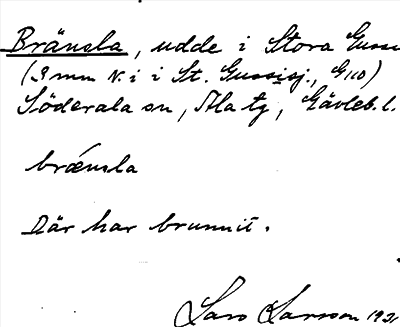 Bränsla, udde i Stora Guss
(3 mm N. i i St. Gussisj., G110)
Söderala sn, Ala tg, Gävleb. l.
brǽnsla
Där har brunnit.
Lars Larsson 1931